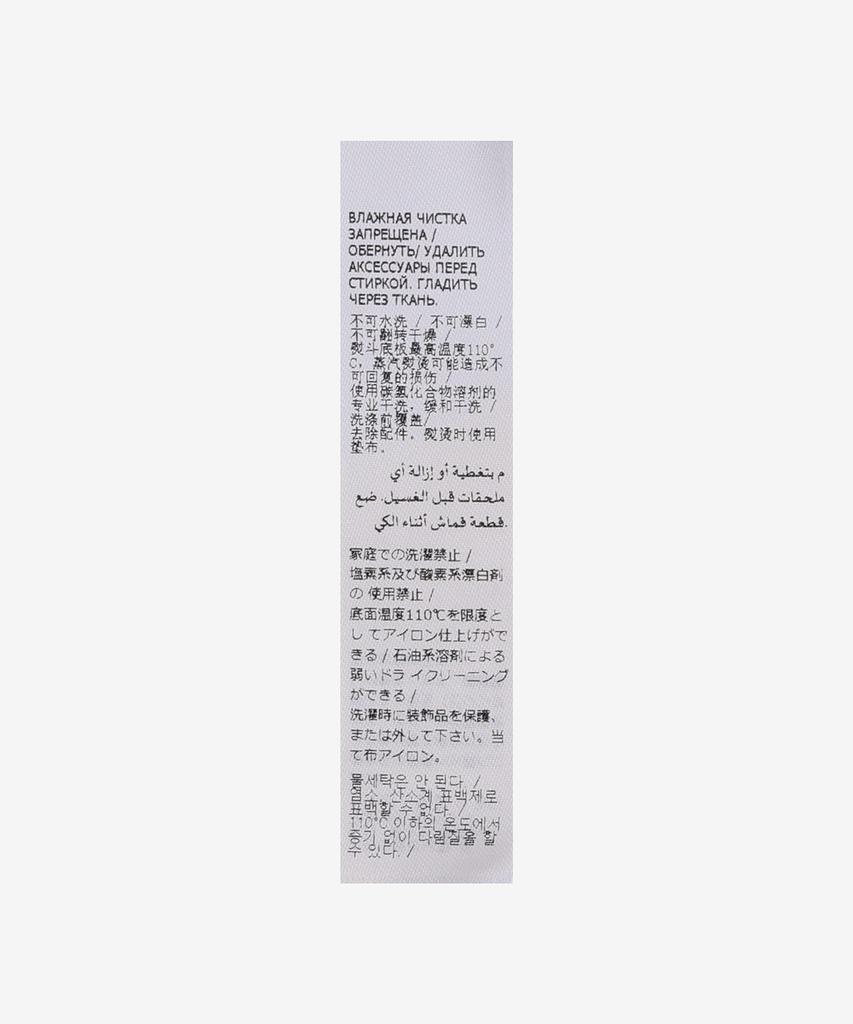 ВЛАЖНАЯ ЧИСТКА
ЗАПРЕЩЕНА /
ОБЕРНУТЬ/ УДАЛИТЬ
АКСЕССУАРЫ ПЕРЕД
СТИРКОЙ. ГЛАДИТЬ
ЧЕРЕЗ ТКАНЬ.
不可水洗 / 不可漂白 /
不可翻转干燥 /
熨斗底板最高温度110°
C, 蒸汽熨烫可能造成不
可回复的损伤 /
使用碳氢化合物溶剂的
专业干洗, 缓和干洗 /
洗涤前覆盖/
去除配件, 熨烫时使用
垫布。
م بتغطية أو إزالة أي
ملحقات قبل الغسيل. ضع
قطعة قماش أثناء الكي.
家庭での洗濯禁止 /
塩素系及び酸素系漂白剤
の 使用禁止 /
底面温度110℃を限度と
し てアイロン仕上げがで
きる / 石油系溶剤による
弱いドラ イクリーニング
ができる /
洗濯時に装飾品を保護、
または外して下さい。当
て布アイロン。
물세탁은 안 된다. /
염소, 산소계 표백제로
표백할 수 없다. /
110°C 이하의 온도에서
증기 없이 다림질을 할
수 있다. /